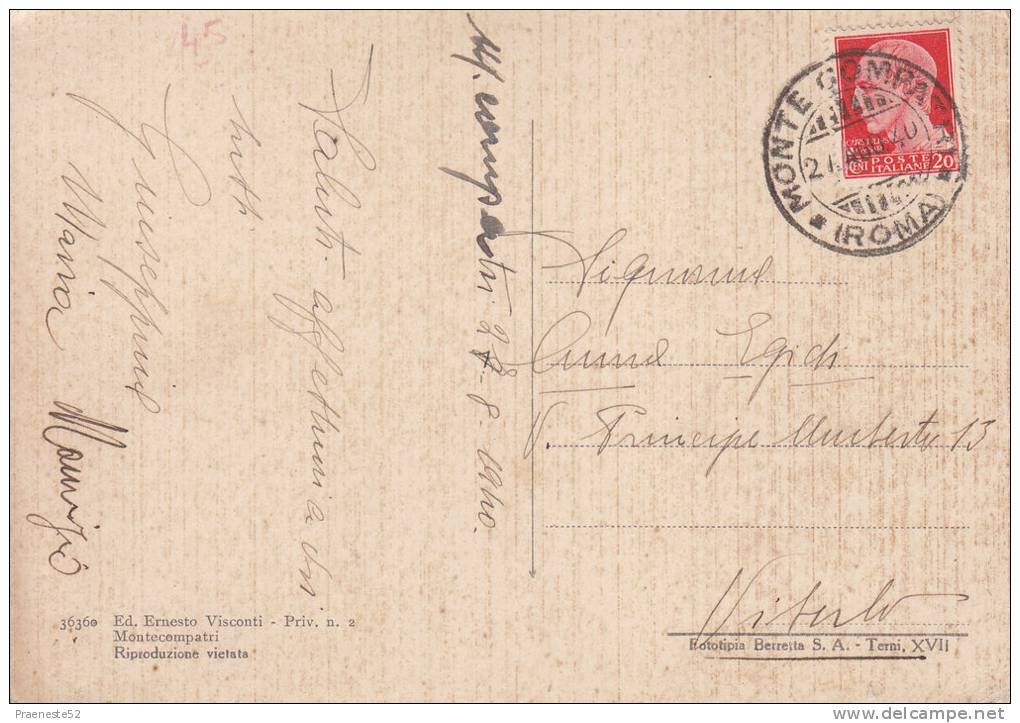 45
Saluti affettuosi a voi
tutti
Giuseppina
Maria Maurizio
M. Compatri 27-8-1940.
MONTE COMPATRI
27 AGO 40
(ROMA)
POSTE
ITALIANE
CENT 20
Signorina
Anna Egidi
V. Principe Umberto 13
Viterbo
36360 Ed. Ernesto Visconti - Priv. n. 2
Montecompatri
Riproduzione vietata
Fototipia Berretta S. A. - Terni, XVII
Praeneste52